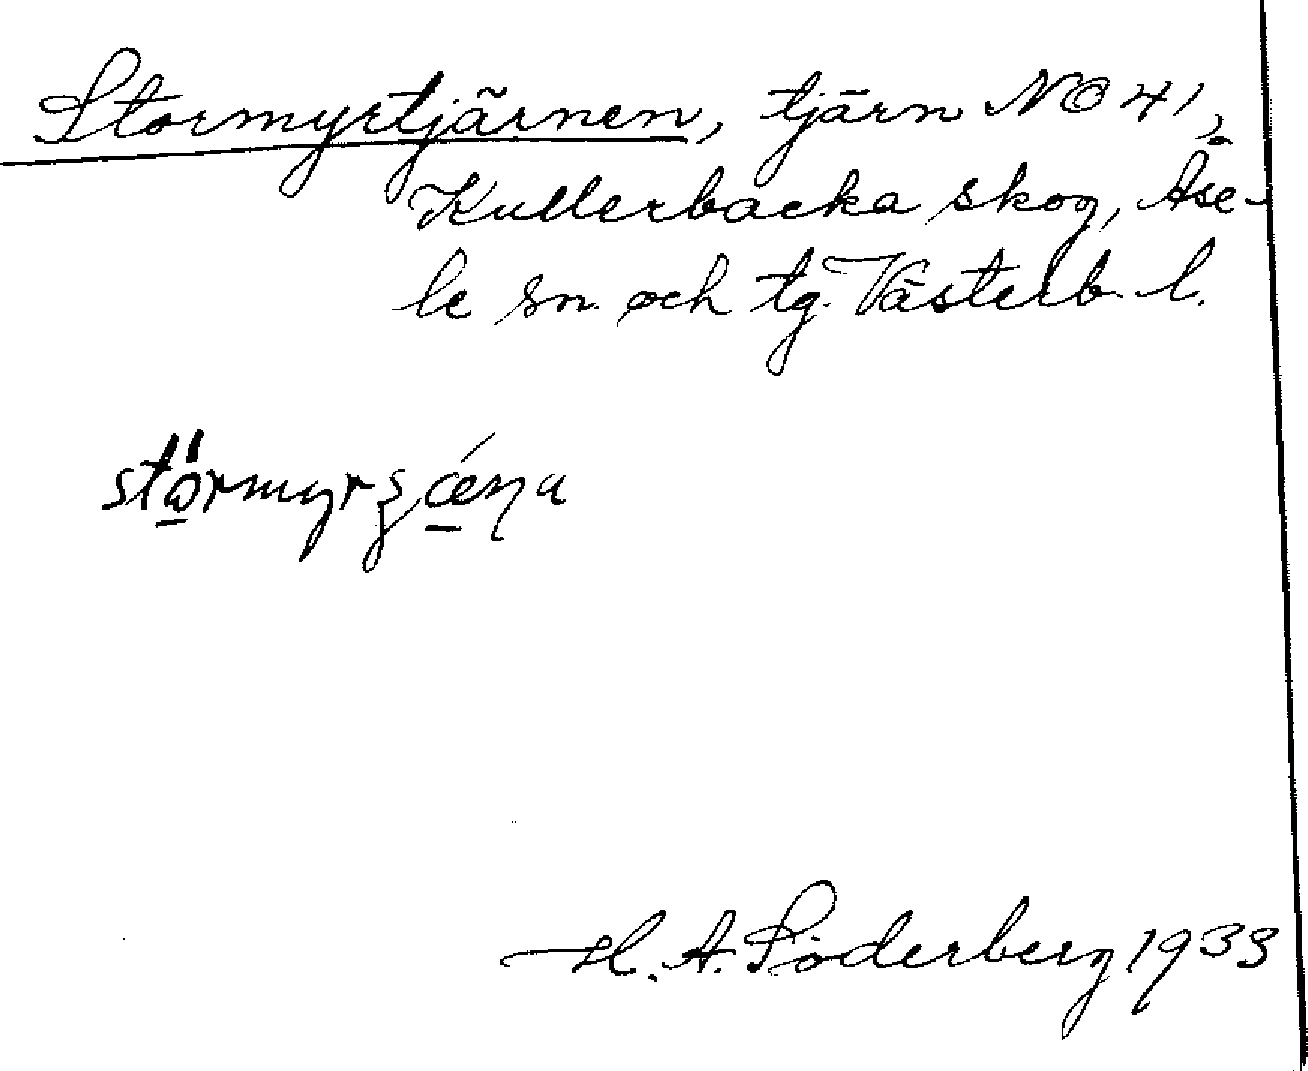 Stormyrtjärnen, tjärn NO 41,
Kullerbacka skog, Åse-
le sn. och tg. Västerb. l.
H. A. Söderberg 1933